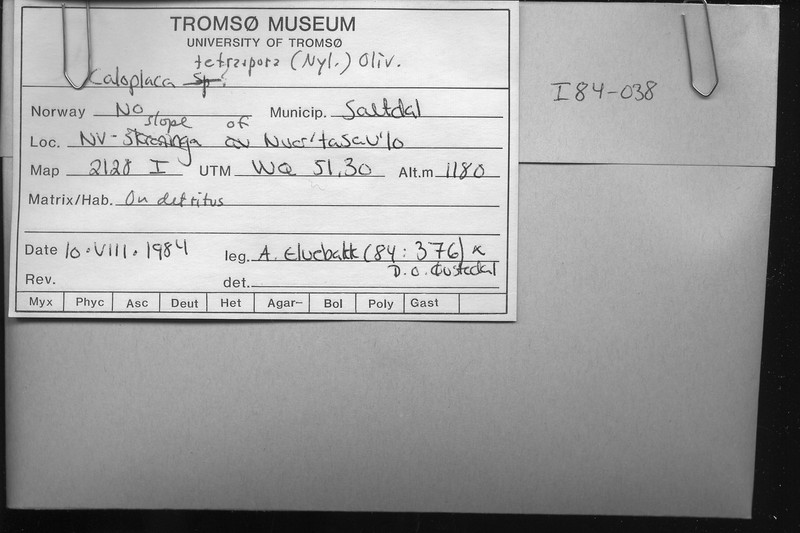 TROMSØ MUSEUM
UNIVERSITY OF TROMSØ
tetraspora (Nyl.) Oliv.
Caloplaca sp.
Norway No Municip. Saltdal
slope of
Loc. NV-skråninga av Nuor'tasav'lo
Map 2128 I UTM WQ 51,30 Alt.m 1180
Matrix/Hab. On detritus
Date 10.VIII.1984 leg. A. Elvebakk (84:376) &
D.O. Øvstedal
Rev. det.
Myx Phyc Asc Deut Het Agar- Bol Poly Gast
I84-038